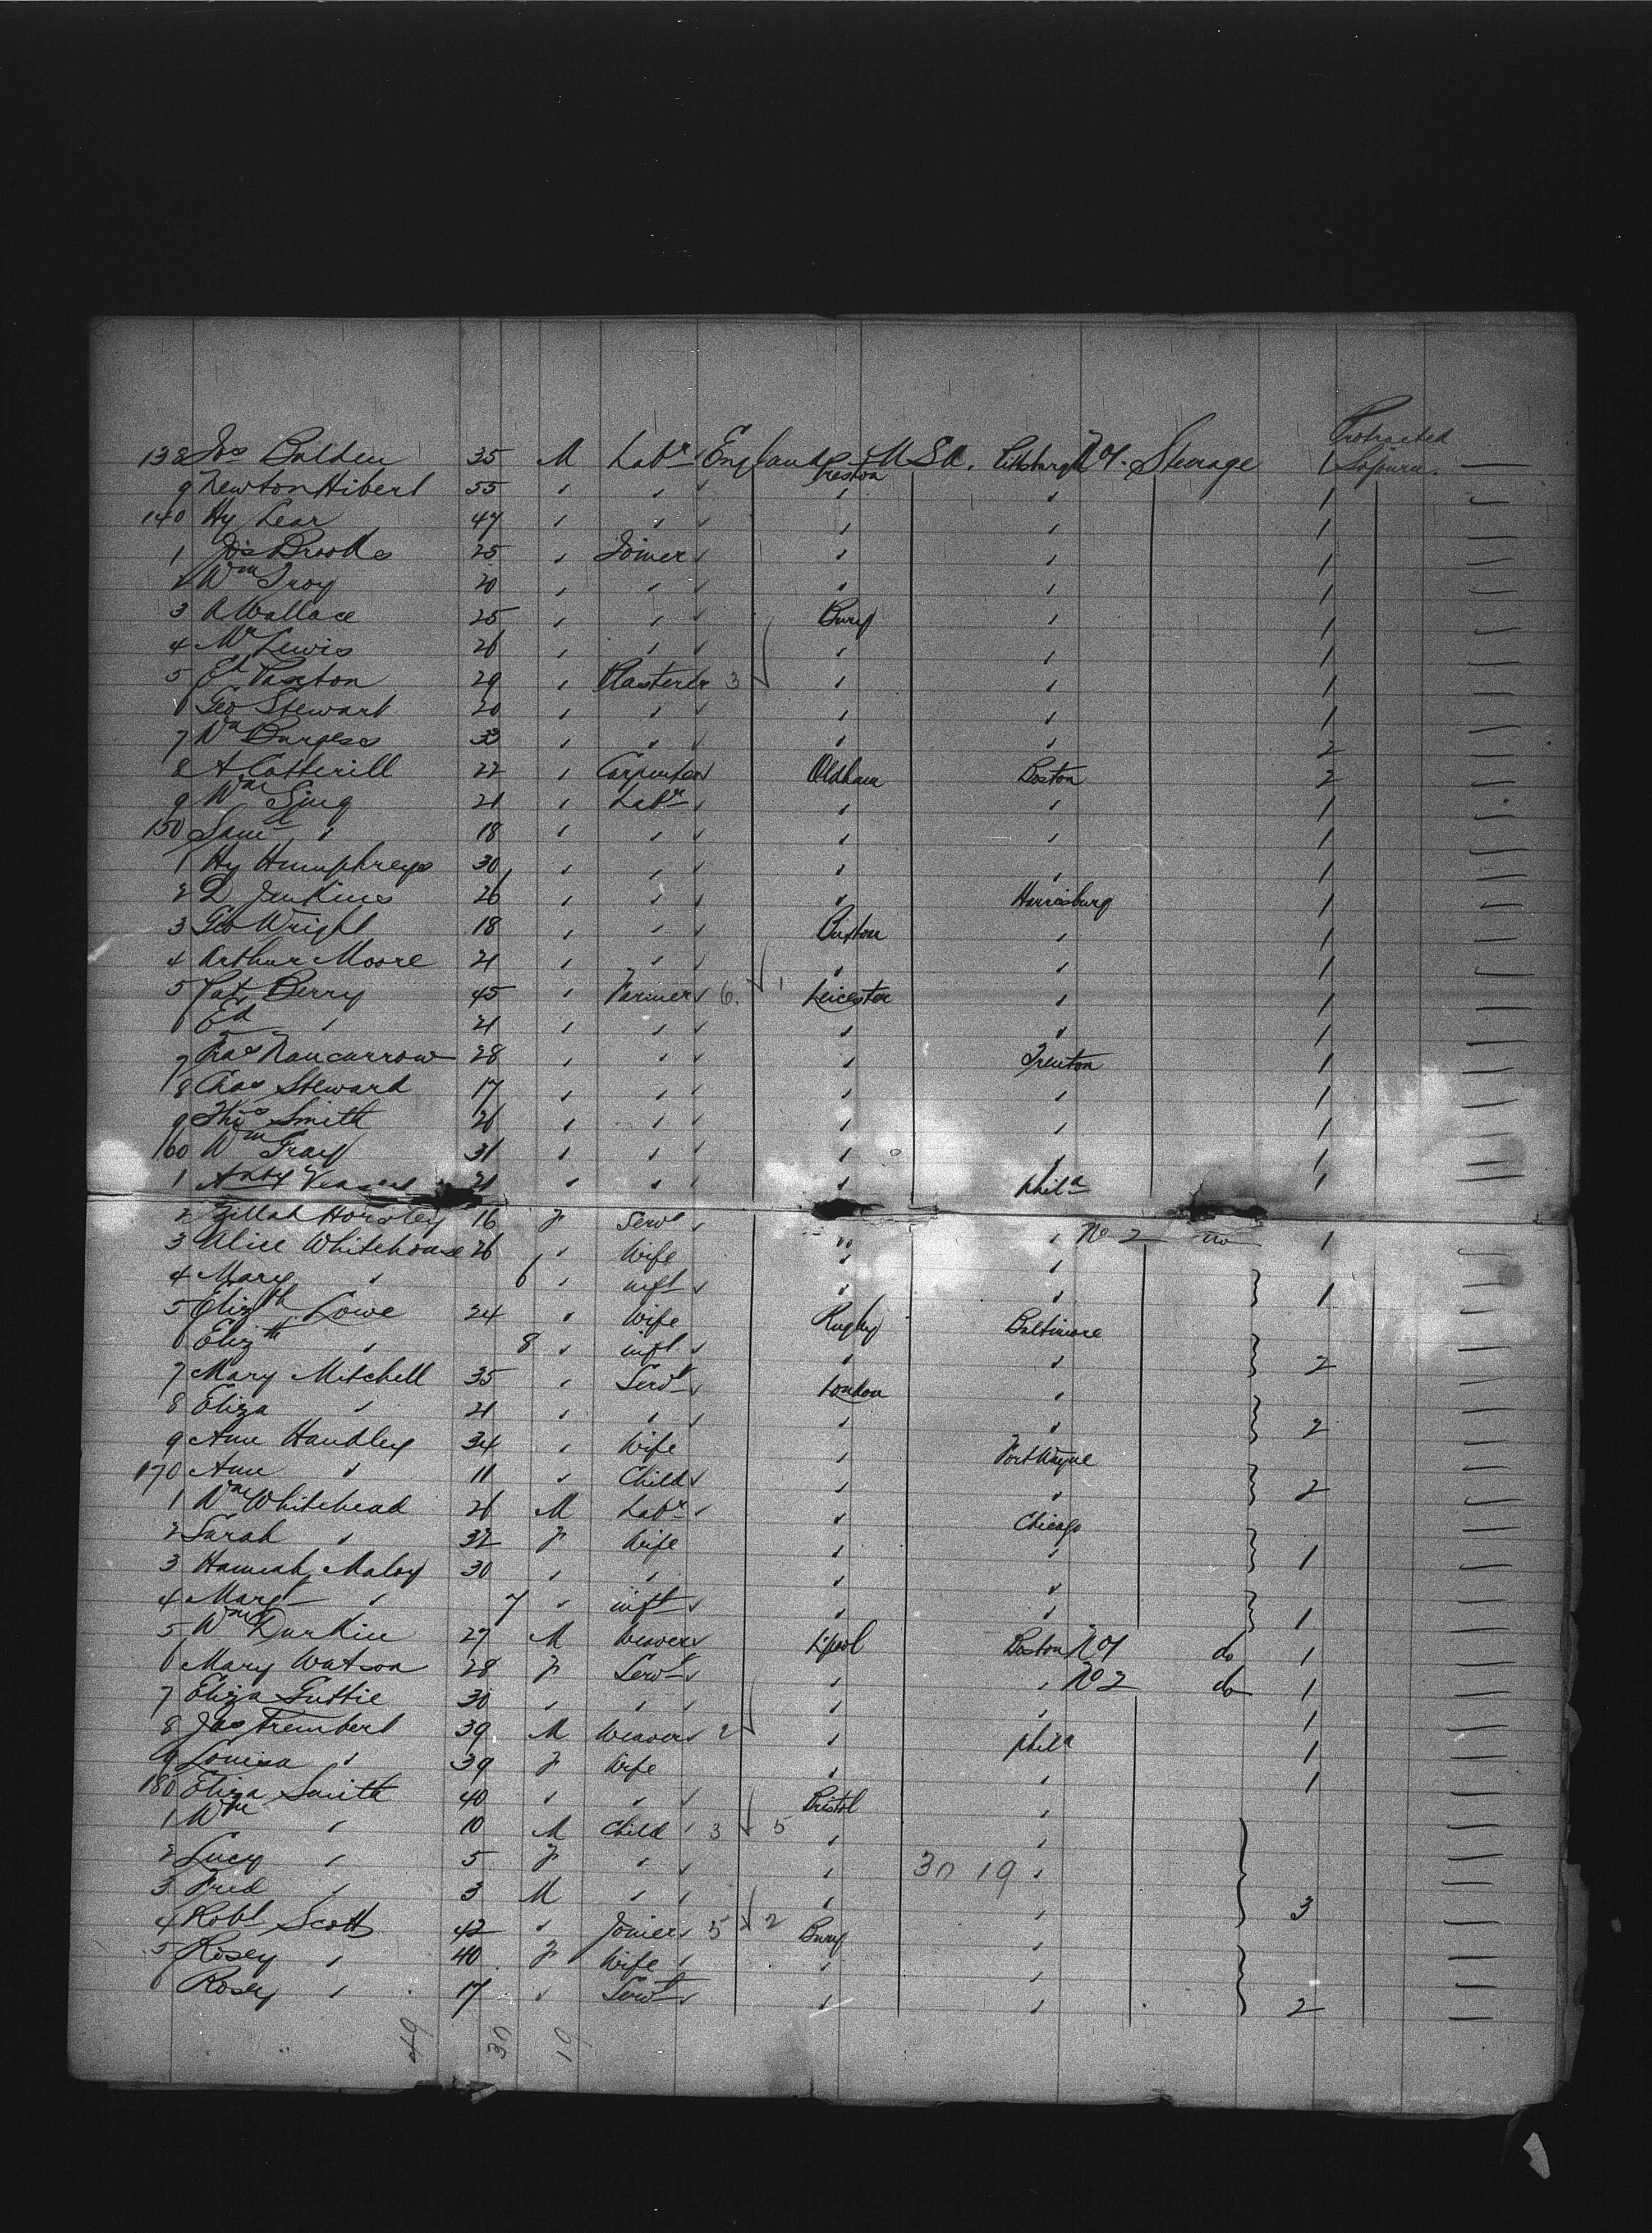 Protracted
138 Jos Bolden 35 M Labr England Preston U.S.A. Pittsburgh No 1. Steerage 1 Sojourn. —
9 Newton Hibert 55 " " " " " 1 —
140 Hy Lear 47 " " " " " 1 —
1 Jos Brooks 25 " Joiner " " " 1 —
2 Wm Troy 20 " " " " " 1 —
3 A Wallace 25 " " " Bury " 1 —
4 Wm Lewis 26 " " " " " 1 —
5 Ed Paxton 29 " Plasterer 3 " " 1 —
6 Geo Stewart 20 " " " " " 1 —
7 Wm Burgess 33 " " " " " 2 —
8 A Cotterill 22 " Carpenter Oldham Boston 2 —
9 Wm Sing 21 " Labr " " " 1 —
150 Saml " 18 " " " " " 1 —
1 Hy Humphreys 30 " " " " " 1 —
2 D Jenkins 26 " " " " Harrisburg 1 —
3 Geo Wright 18 " " " Buxton " 1 —
4 Arthur Moore 21 " " " " " 1 —
5 Pat Berry 45 " Farmer 6. 1 Leicester " 1 —
6 Ed " 21 " " " " " 1 —
7 Nancarrow 28 " " " " Trenton 1 —
8 Chas Steward 17 " " " " " 1 —
9 Thos Smith 26 " " " " " 1 —
160 Wm Gray 31 " " " " " 1 —
1 21 " " " " Phila 1
2 Zillah Horsley 16 F Servt " " " No 2 do 1 —
3 Alice Whitehouse 26 " Wife " " —
4 Mary " 6 " inft " " " } 1 —
5 Elizth Lowe 24 " Wife Rugby Baltimore —
6 Elizth " 8 " inft " " " } 2 —
7 Mary Mitchell 35 " Servt " London " —
8 Eliza " 21 " " " " " } 2 —
9 Ann Handley 34 " Wife " Fort Wayne —
170 Ann " 11 " Child " " " } 2 —
1 Wm Whitehead 26 M Labr " " Chicago —
2 Sarah " 32 F Wife " " } 1 —
3 Hannah Maloy 30 " " " " —
4 Margt " 7 " inft " " " } 1 —
5 Wm Durkin 27 M Weaver L'pool Boston No 1 do 1 —
6 Mary Watson 28 F Servt " " " No 2 do 1 —
7 Eliza Guttie 30 " " " " " 1 —
8 Jas Trembert 39 M Weaver 2 " Phila 1 —
9 Louisa " 39 F Wife " " 1 —
180 Eliza Smith 40 " " " Bristol " —
1 Wm " 10 M Child " 3 5 " " —
2 Lucy " 5 F " " " 30 19 " —
3 Fred " 3 M " " " " } 3 —
4 Robt Scott 42 " Joiner 5 2 Bury " —
5 Rosey " 40 F Wife " " " —
6 Rosey " 17 " Servt " " " } 2 —
49 30 19